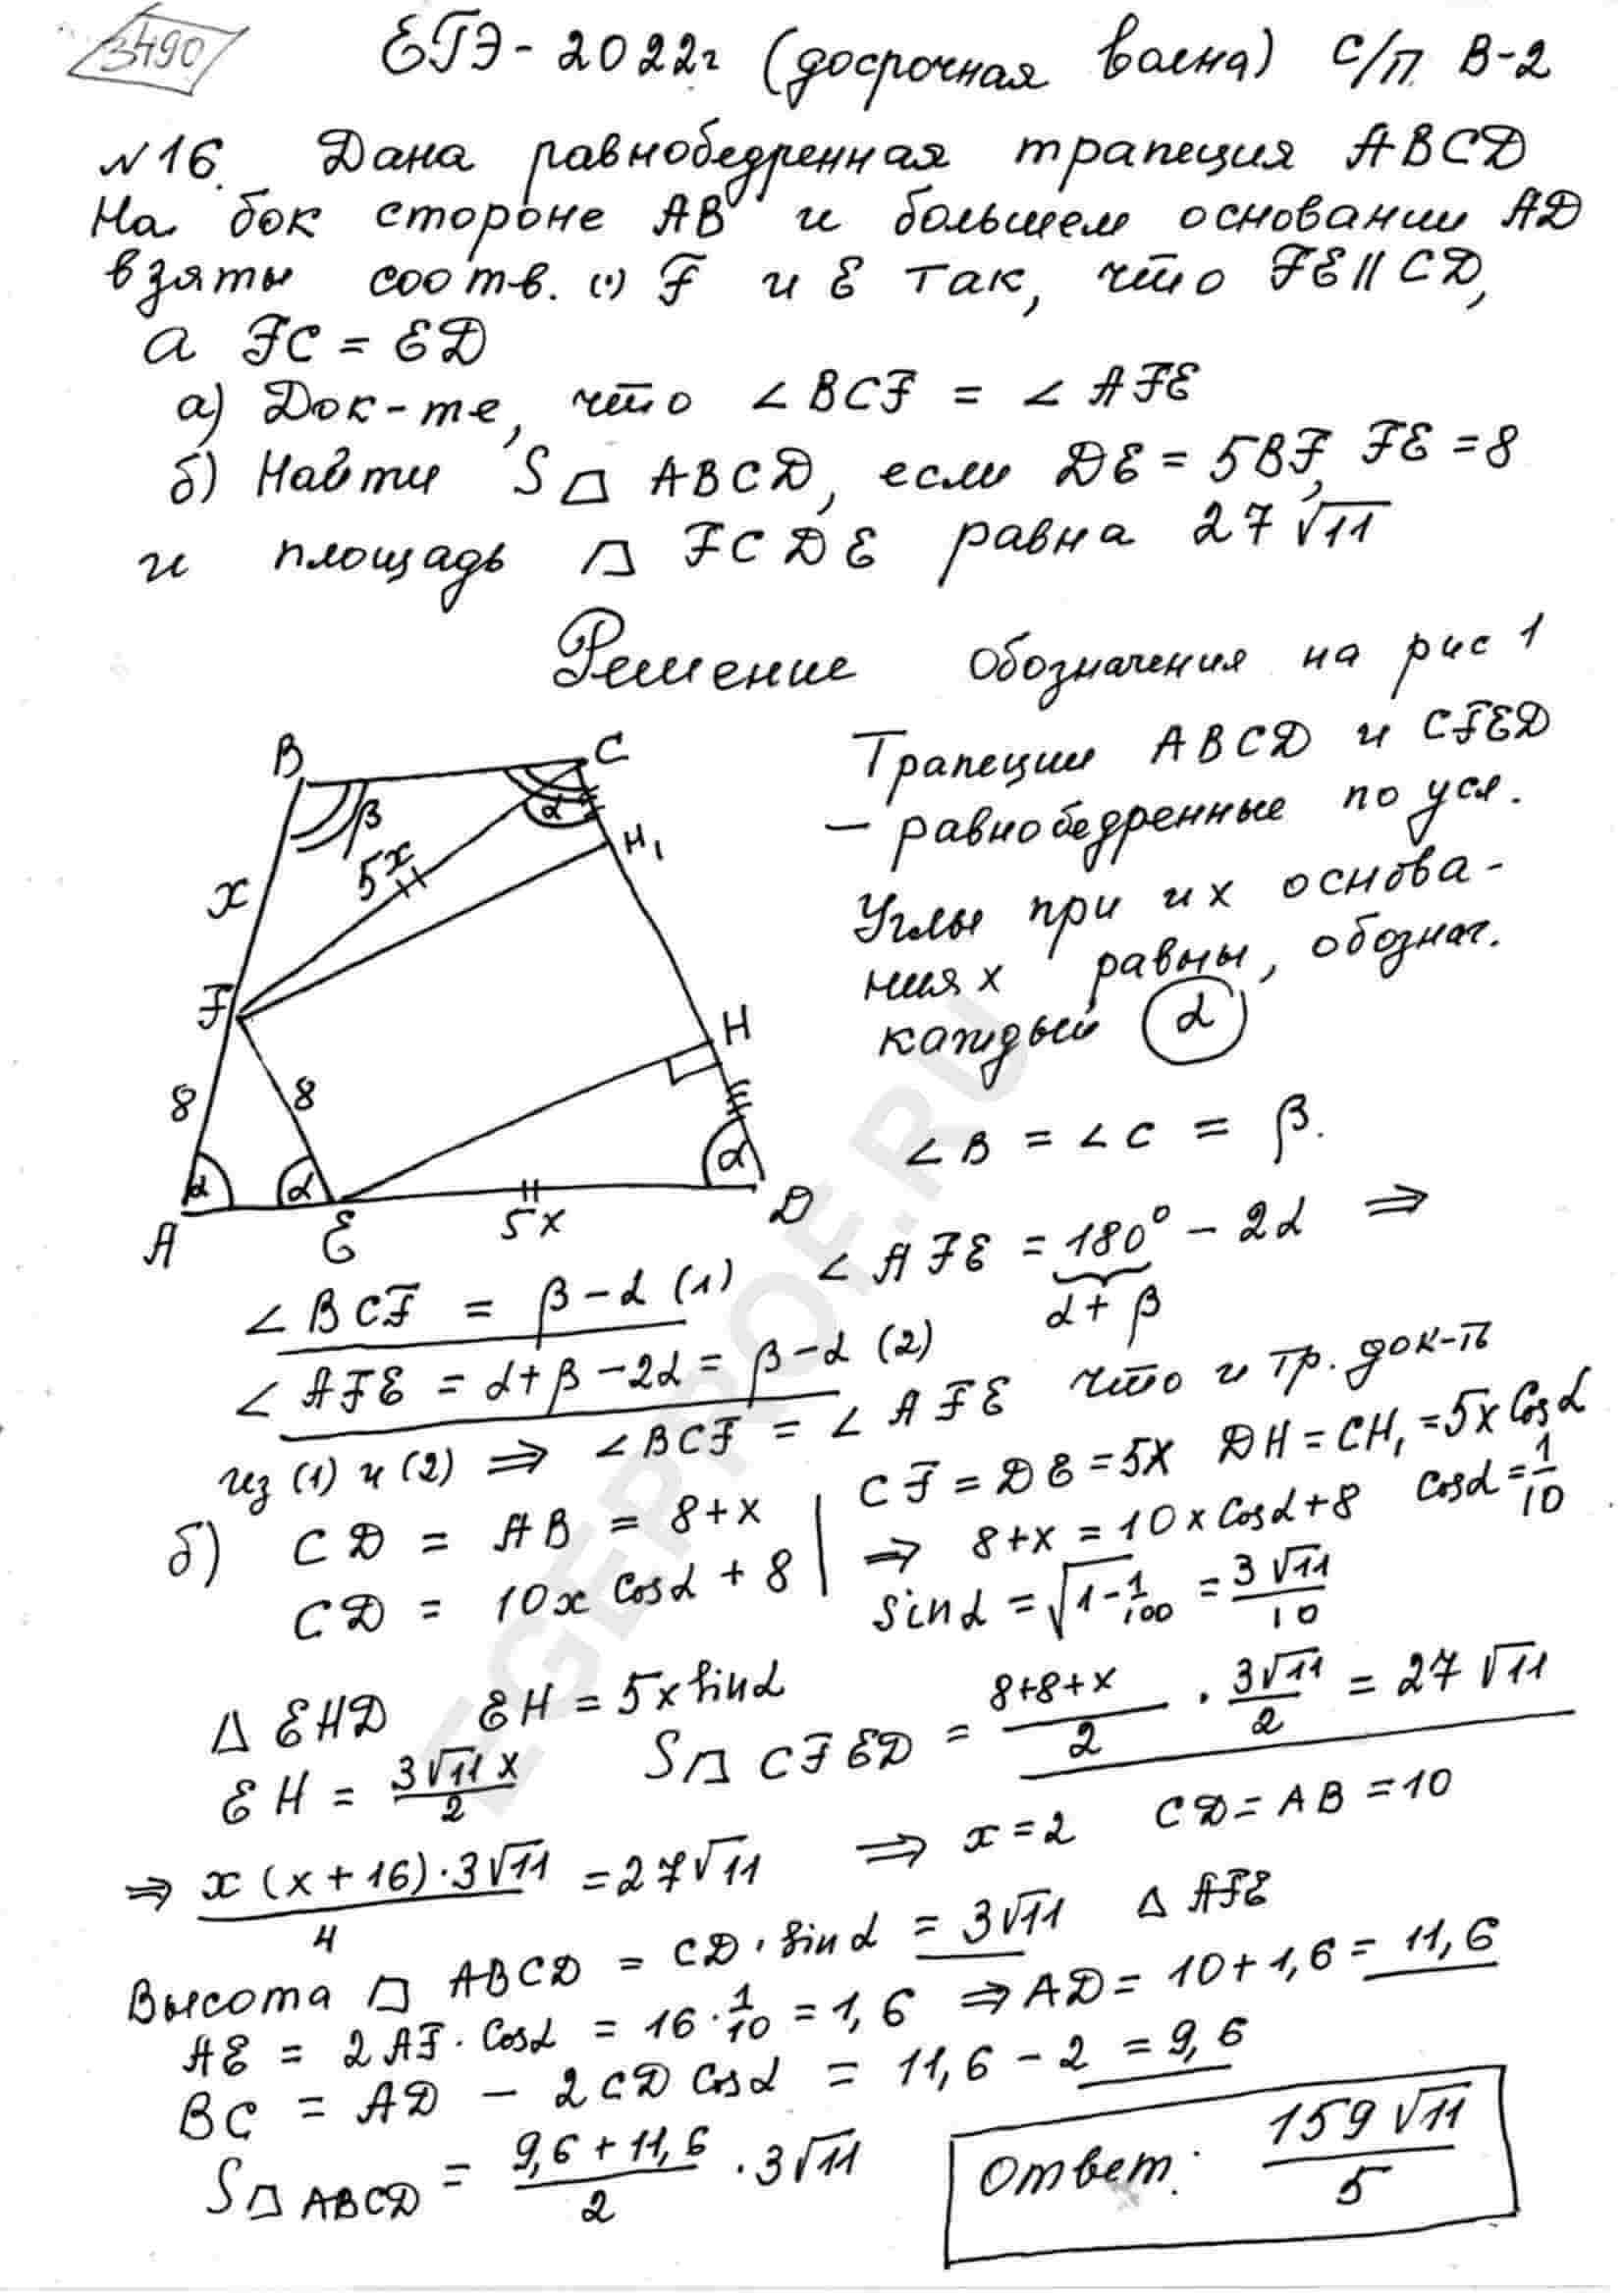 3490
ЕГЭ - 2022г (досрочная волна) С/П В-2
№16. Дана равнобедренная трапеция ABCD
На бок стороне AB и большем основании AD
взяты соотв. (·) F и E так, что FE || CD,
а FC = ED
а) Док-те, что ∠BCF = ∠AFE
б) Найти S⏢ ABCD, если DE = 5BF, FE = 8
и площадь ⏢ FCDE равна 27√11
Решение Обозначения на рис 1
Трапеции ABCD и CFED
– равнобедренные по усл.
Углы при их основа-
ниях равны, обознач.
каждый α
B C β α H₁ x 5x
F H 8 8
α α α
A E 5x D
∠B = ∠C = β.
∠AFE = 180° - 2α ⇒
α + β
∠BCF = β - α (1)
∠AFE = α + β - 2α = β - α (2)
из (1) и (2) ⇒ ∠BCF = ∠AFE что и тр. док-ть
б) CD = AB = 8 + x
CD = 10x cosα + 8
CF = DE = 5x DH = CH₁ = 5x cosα
⇒ 8 + x = 10x cosα + 8 cosα = 1/10
sinα = √(1 - 1/100) = 3√11/10
△ EHD EH = 5x sinα
EH = 3√11 x/2
S⏢ CFED = (8+8+x)/2 · 3√11/2 = 27√11
⇒ x(x+16)·3√11/4 = 27√11 ⇒ x = 2 CD = AB = 10
Высота ⏢ ABCD = CD · sinα = 3√11 △ AFE
AE = 2AF · cosα = 16 · 1/10 = 1,6 ⇒ AD = 10 + 1,6 = 11,6
BC = AD - 2CD cosα = 11,6 - 2 = 9,6
S⏢ABCD = (9,6 + 11,6)/2 · 3√11
Ответ: 159√11/5
EGEPROF.RU